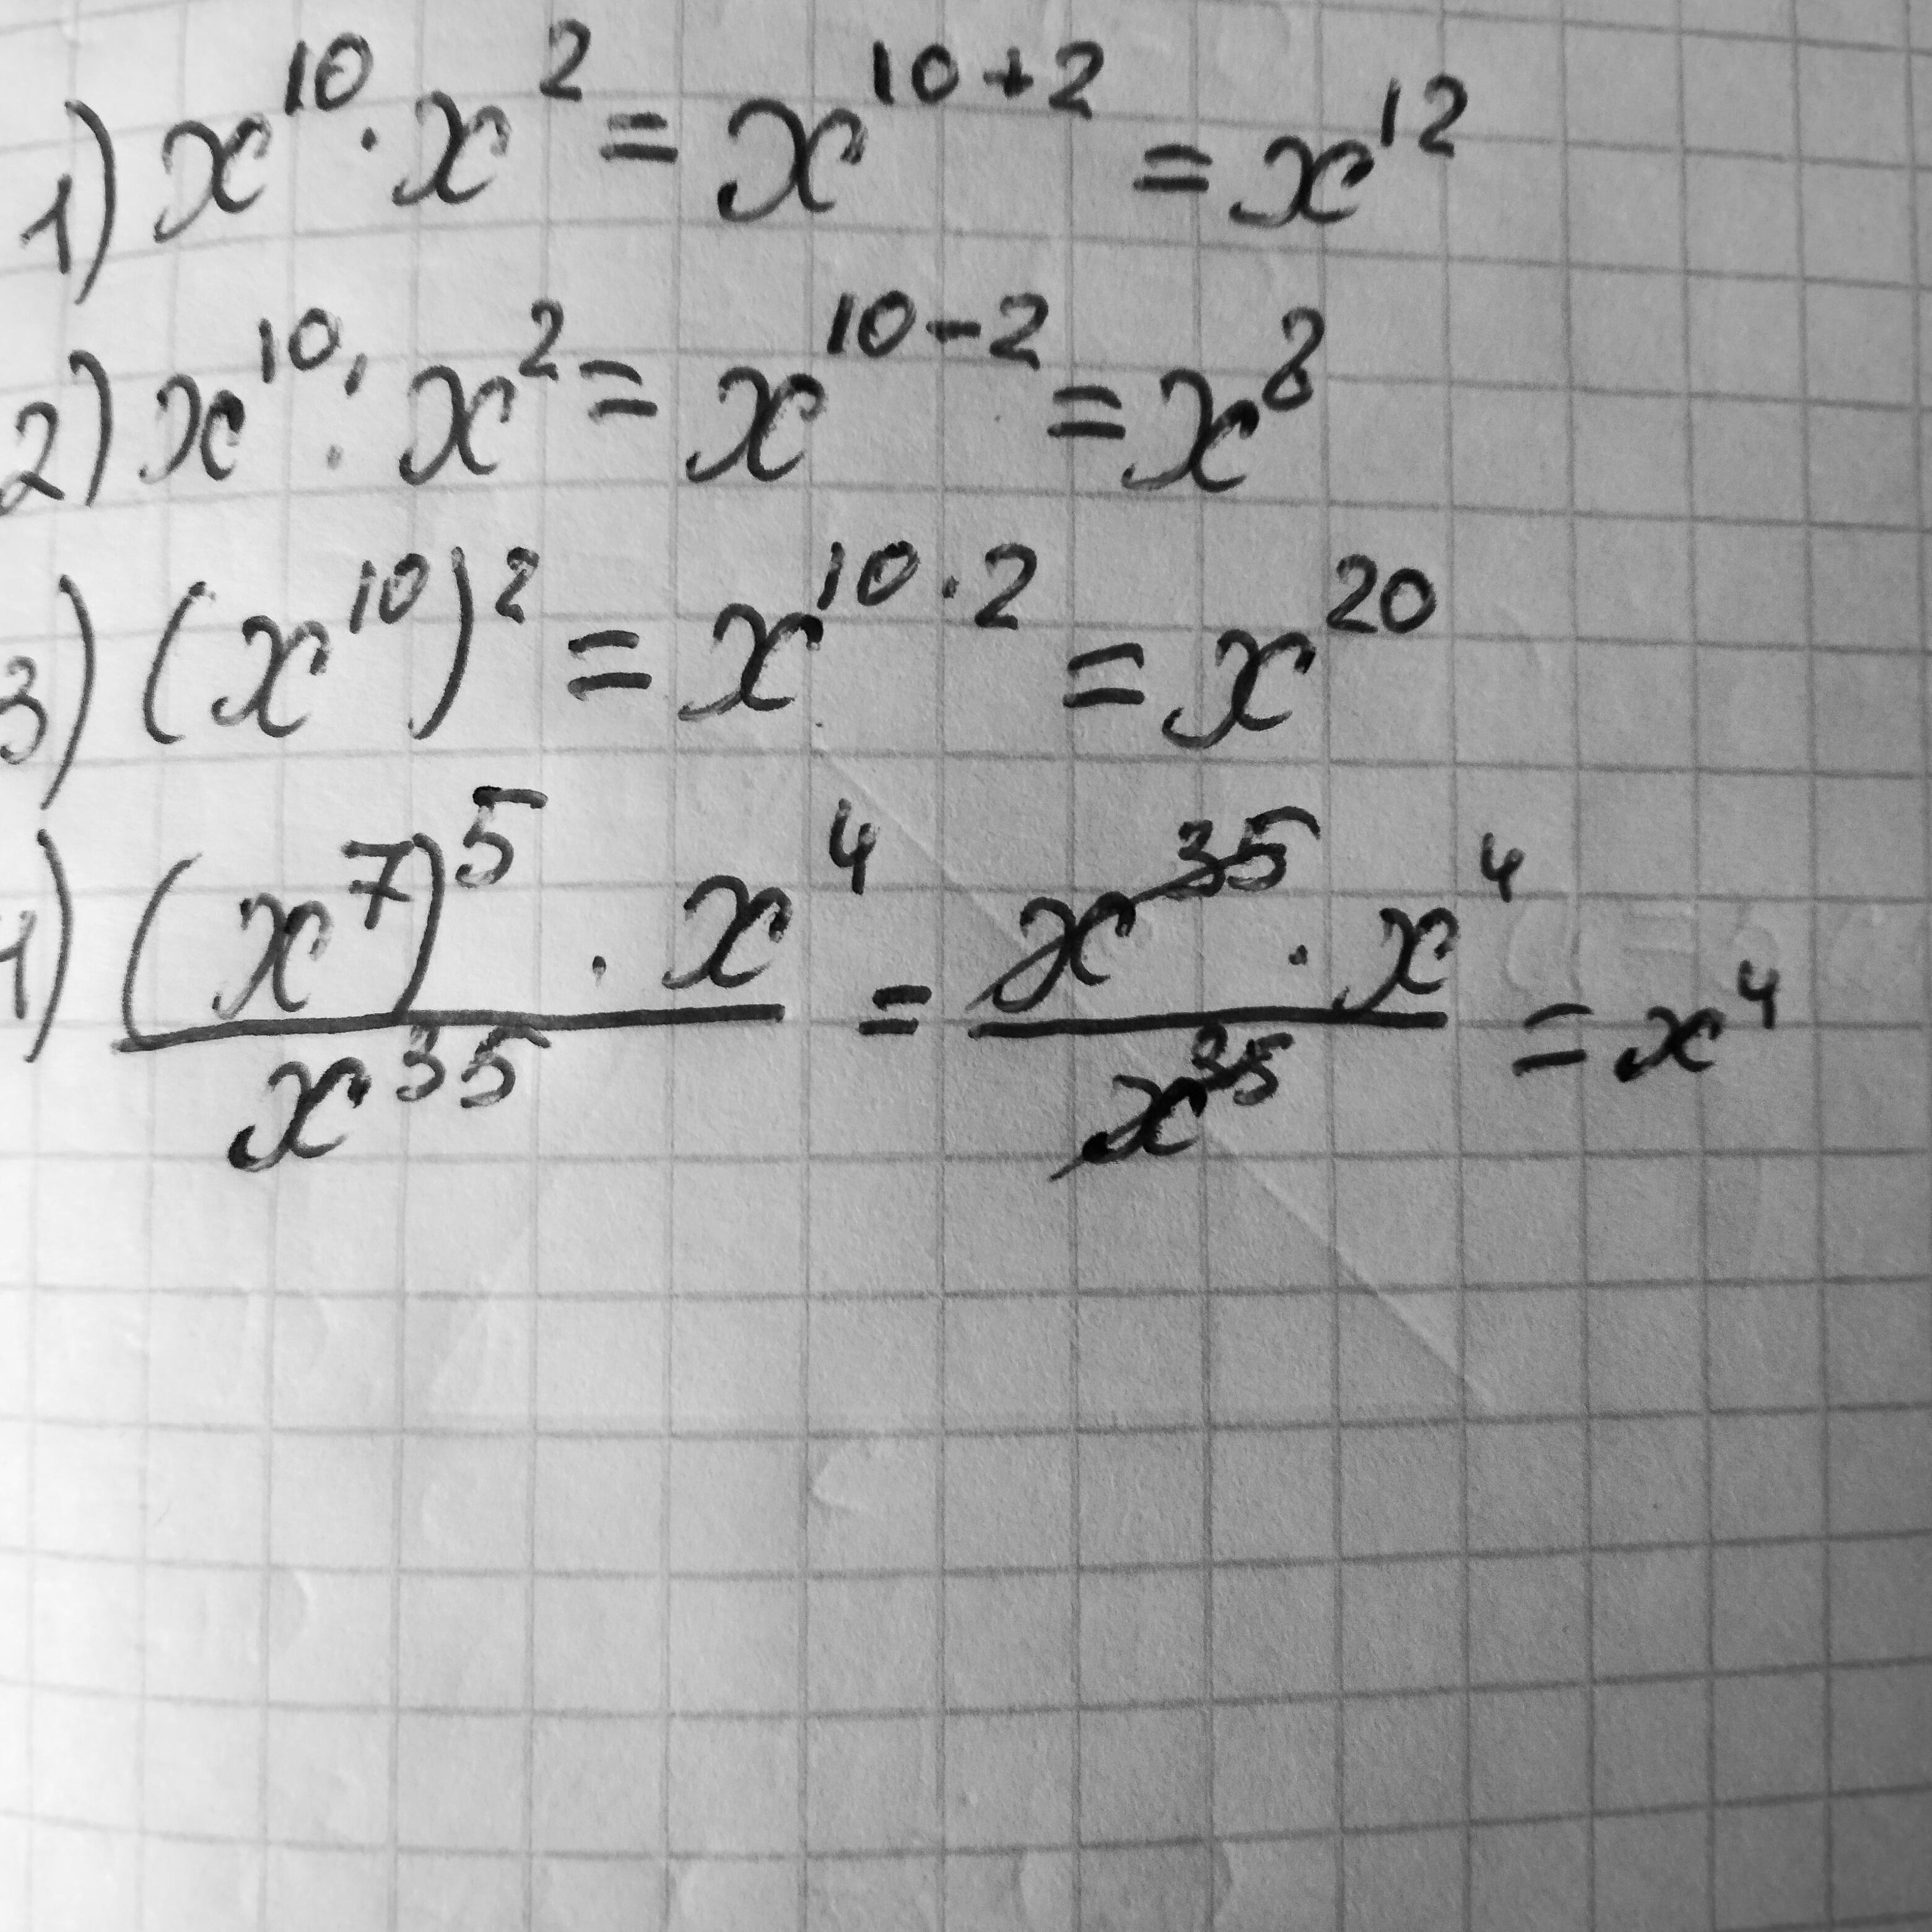 1) x^10 · x^2 = x^(10+2) = x^12
2) x^10 : x^2 = x^(10-2) = x^8
3) (x^10)^2 = x^(10·2) = x^20
4) ((x^7)^5 · x^4)/(x^35) = (x^35 · x^4)/(x^35) = x^4